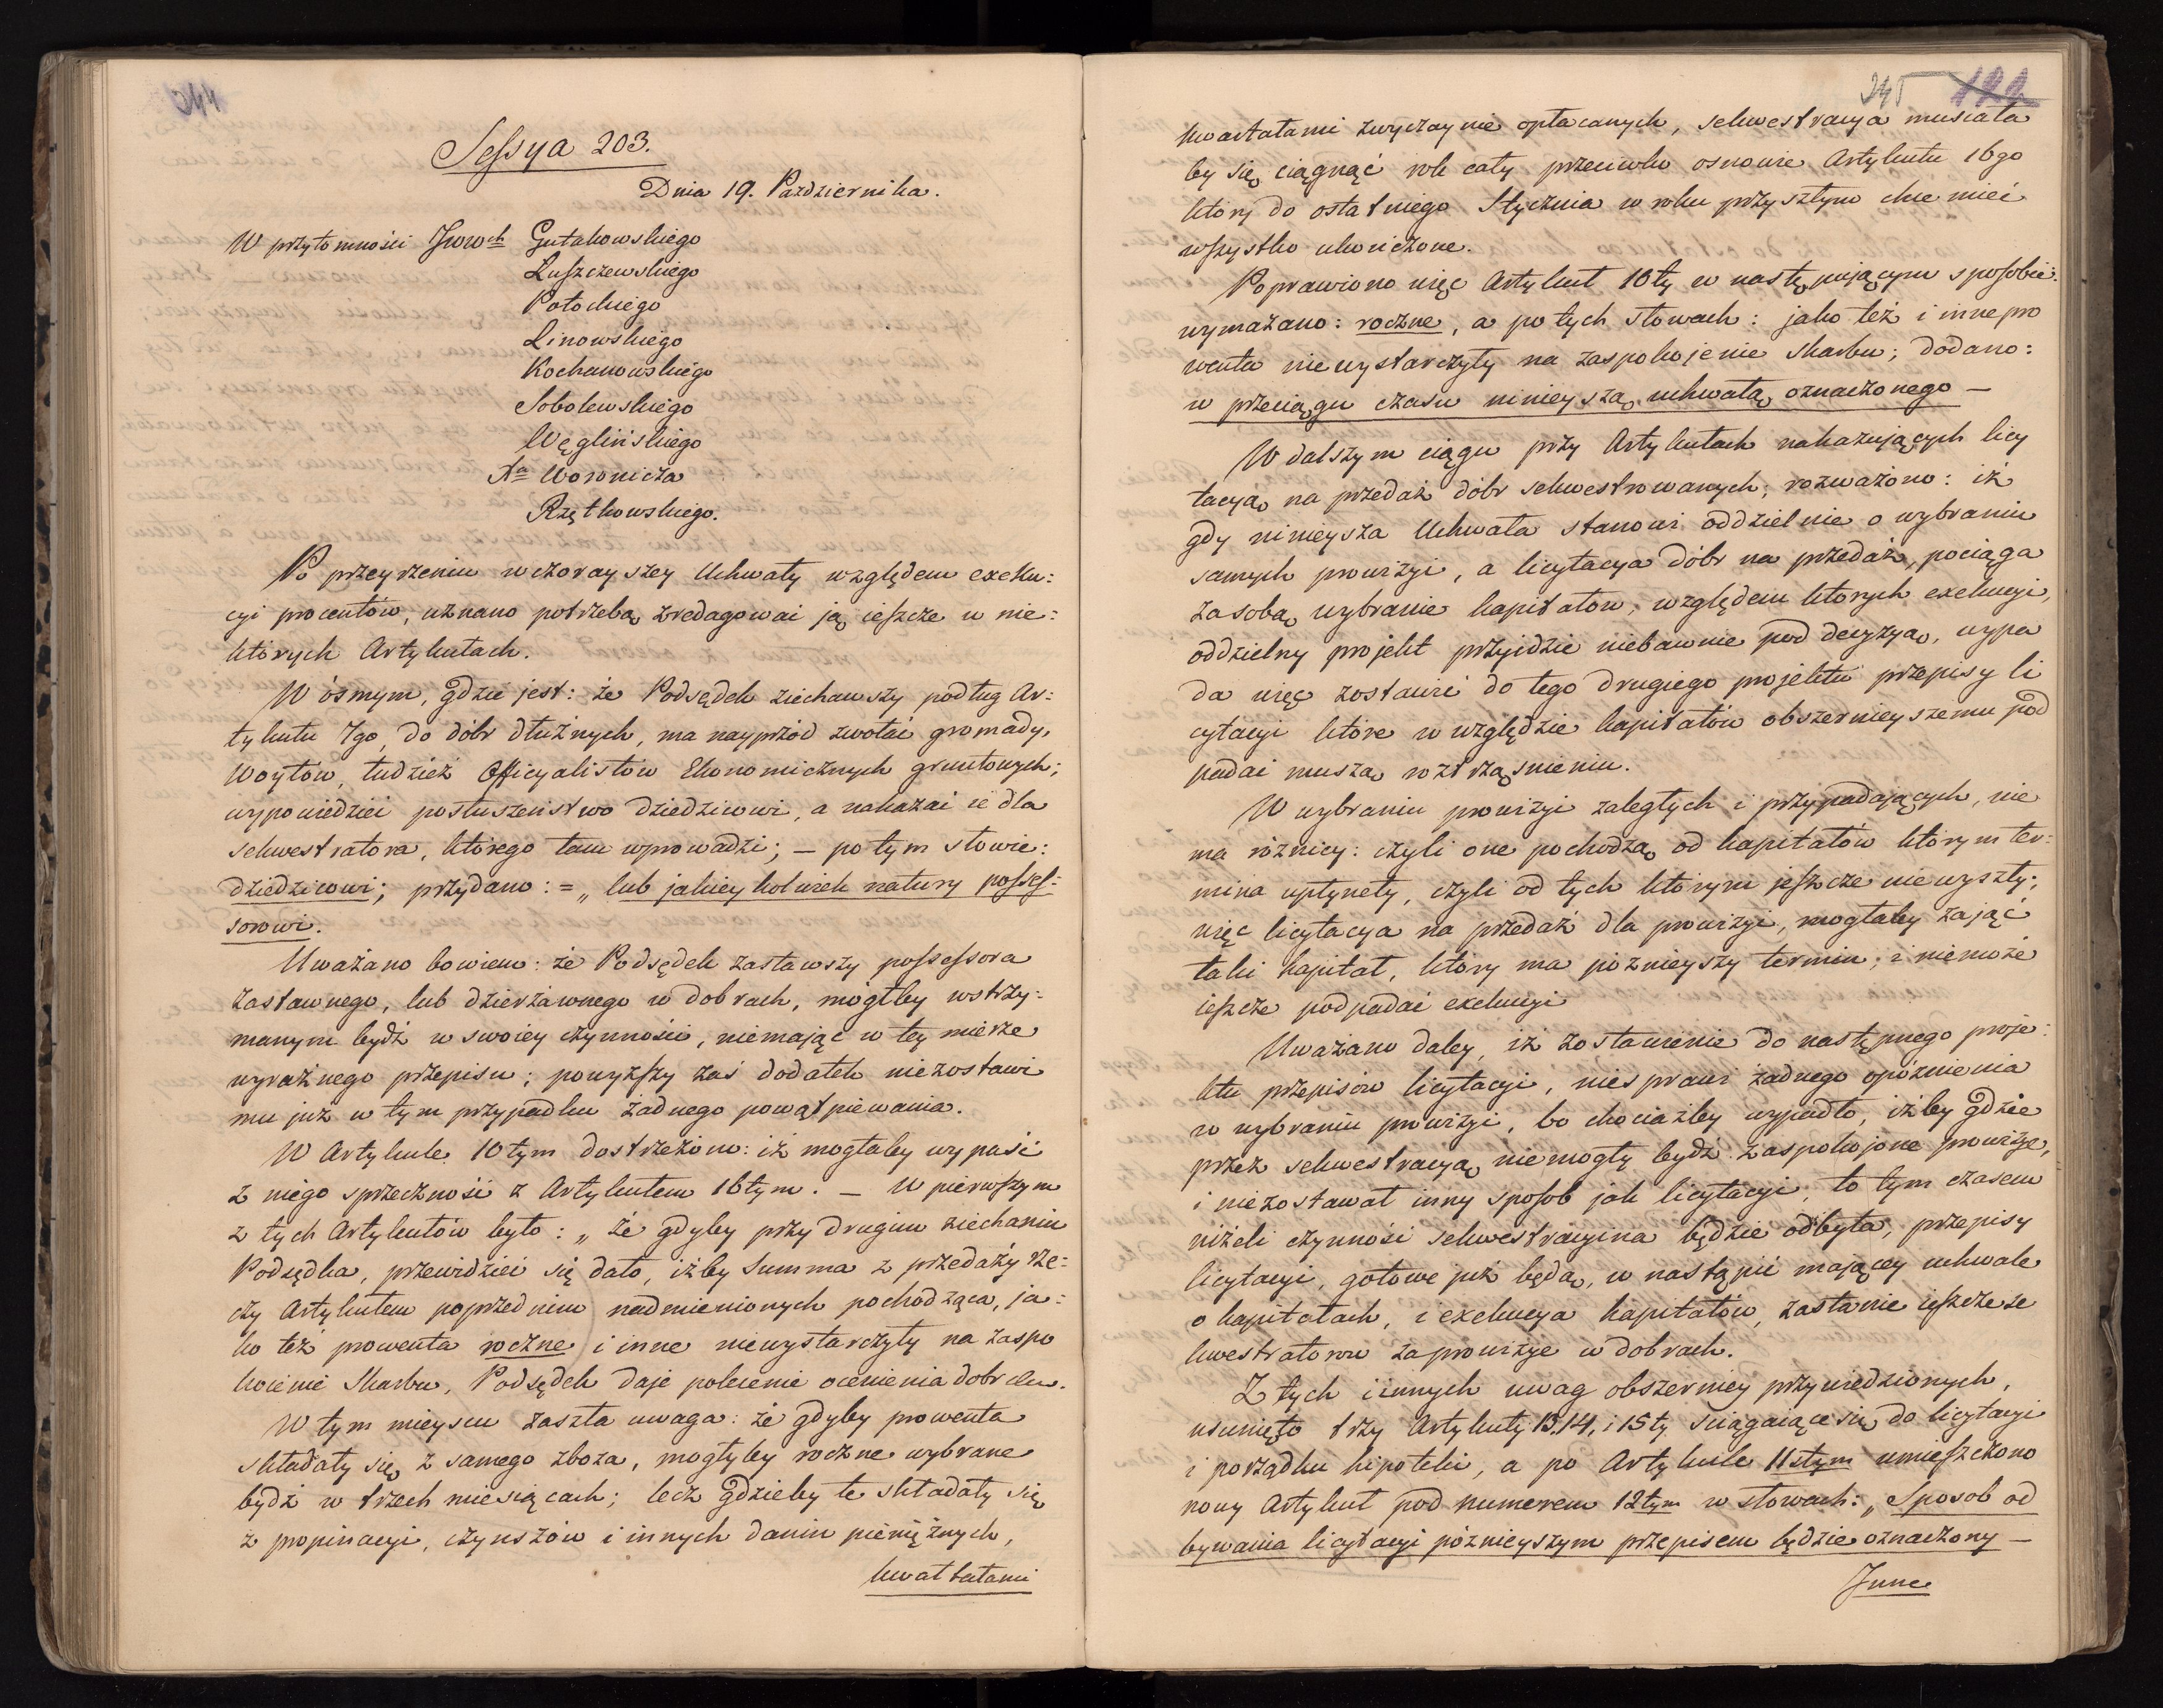 244
Sessya 203.
Dnia 19. Października.
W przytomności Jwwch Gutakowskiego
Łuszczewskiego
Potockiego
Linowskiego
Kochanowskiego
Sobolewskiego
Węglińskiego
Xa Woronicza
Rzętkowskiego.
Po przeyrzeniu wczorayszey Uchwały względem exeku:
cyi procentów, uznano potrzebą zredagować ją ieszcze w nie:
których Artykułach.
W ósmym, gdzie jest: że Podsędek ziechawszy podług Ar:
tykułu 7go, do dóbr dłużnych, ma nayprzód zwołać gromady,
Woytów, tudzież Officyalistów Ekonomicznych gruntowych;
wypowiedzieć posłuszeństwo dziedzicowi, a nakazać ie dla
sekwestratora, którego tam wprowadzi; — po tym słowie:
dziedzicowi; przydano: = „lub jakieykolwiek natury posses:
sorowi.
Uważano bowiem: że Podsędek zastawszy possessora
zastawnego, lub dzierżawnego w dobrach, mógłby wstrzy:
manym bydź w swoiey czynności, niemając w tey mierze
wyraźnego przepisu; powyższy zaś dodatek niezostawi
mu już w tym przypadku żadnego powątpiewania.
W Artykule 10tym dostrzeżono: iż mogłaby wypaść
z niego sprzeczność z Artykułem 16tym. — W pierwszym
z tych Artykułów było: „że gdyby przy drugim ziechaniu
Podsędka, przewidzieć się dało, iżby Summa z przedaży rze:
czy Artykułem poprzednim nadmienionych pochodząca, ja:
ko też prowenta roczne i inne niewystarczyły na zaspo
koienie Skarbu, Podsędek daje polecenie ocenienia dobr etc.
W tym mieyscu zaszła uwaga: że gdyby prowenta
składały się z samego zboża, mogłyby roczne wybrane
bydź w trzech miesiącach; lecz gdzieby te składały się
z propinacyi, czynszów i innych danin pieniężnych,
kwartałami
245 122
kwartałami zwyczaynie opłacanych, sekwestracya musiała
by się ciągnąć rok cały przeciwko osnowie Artykułu 16go
który do ostatniego Stycznia w roku przyszłym chce mieć
wszystko ukończone.
Poprawiono więc Artykuł 10ty w następującym sposobie:
wymazano: roczne, a po tych słowach: jako też i inne pro
wenta niewystarczyły na zaspokojenie Skarbu; dodano:
w przeciągu czasu ninieyszą uchwałą oznaczonego —
W dalszym ciągu przy Artykułach nakazujących licy
tacyą na przedaż dóbr sekwestrowanych; rozważono: iż
gdy ninieysza Uchwała stanowi oddzielnie o wybraniu
samych prowizyi, a licytacya dóbr na przedaż, pociąga
za sobą wybranie kapitałów, względem których exekucyi,
oddzielny projekt przyidzie niebawnie pod decyzyą, wypa
da więc zostawić do tego drugiego projektu przepisy li
cytacyi które w względzie kapitałów obszernieyszemu pod
padać muszą roztrząśnieniu.
W wybraniu prowizyi zaległych i przypadających, nie
ma różnicy: czyli one pochodzą od kapitałów którym ter:
mina upłynęły, czyli od tych którym jeszcze nie wyszły;
więc licytacya na przedaż dla prowizyi, mogłaby zająć
taki kapitał, który ma póznieyszy termin; i niemoże
ieszcze podpadać exekucyi
Uważano daley, iż zostawienie do następnego proje:
ktu przepisów licytacyi, niesprawi żadnego opóznienia
w wybraniu prowizyi, bo chociażby wypadło, iżby gdzie
przez sekwestracyą niemogły bydź zaspokojone prowizye,
i niezostawał inny sposób jak licytacyi, to tym czasem
niżeli czynność sekwestracyina będzie odbyta, przepisy
licytacyi, gotowe już będą, w nastąpić mającey uchwale
o kapitałach, i exekucya kapitałów, zastanie ieszcze se
kwestratorow za prowizye w dobrach.
Z tych i innych uwag obszerniey przywiedzionych,
usunięto trzy Artykuły 13. 14. i 15ty ściągaiące się do licytacyi
i porządku hipoteki, a po Artykule 11stym umieszczono
nowy Artykuł pod numerem 12tym w słowach: „Sposob od
bywania licytacyi póznieyszym przepisem będzie oznaczony —
Inne